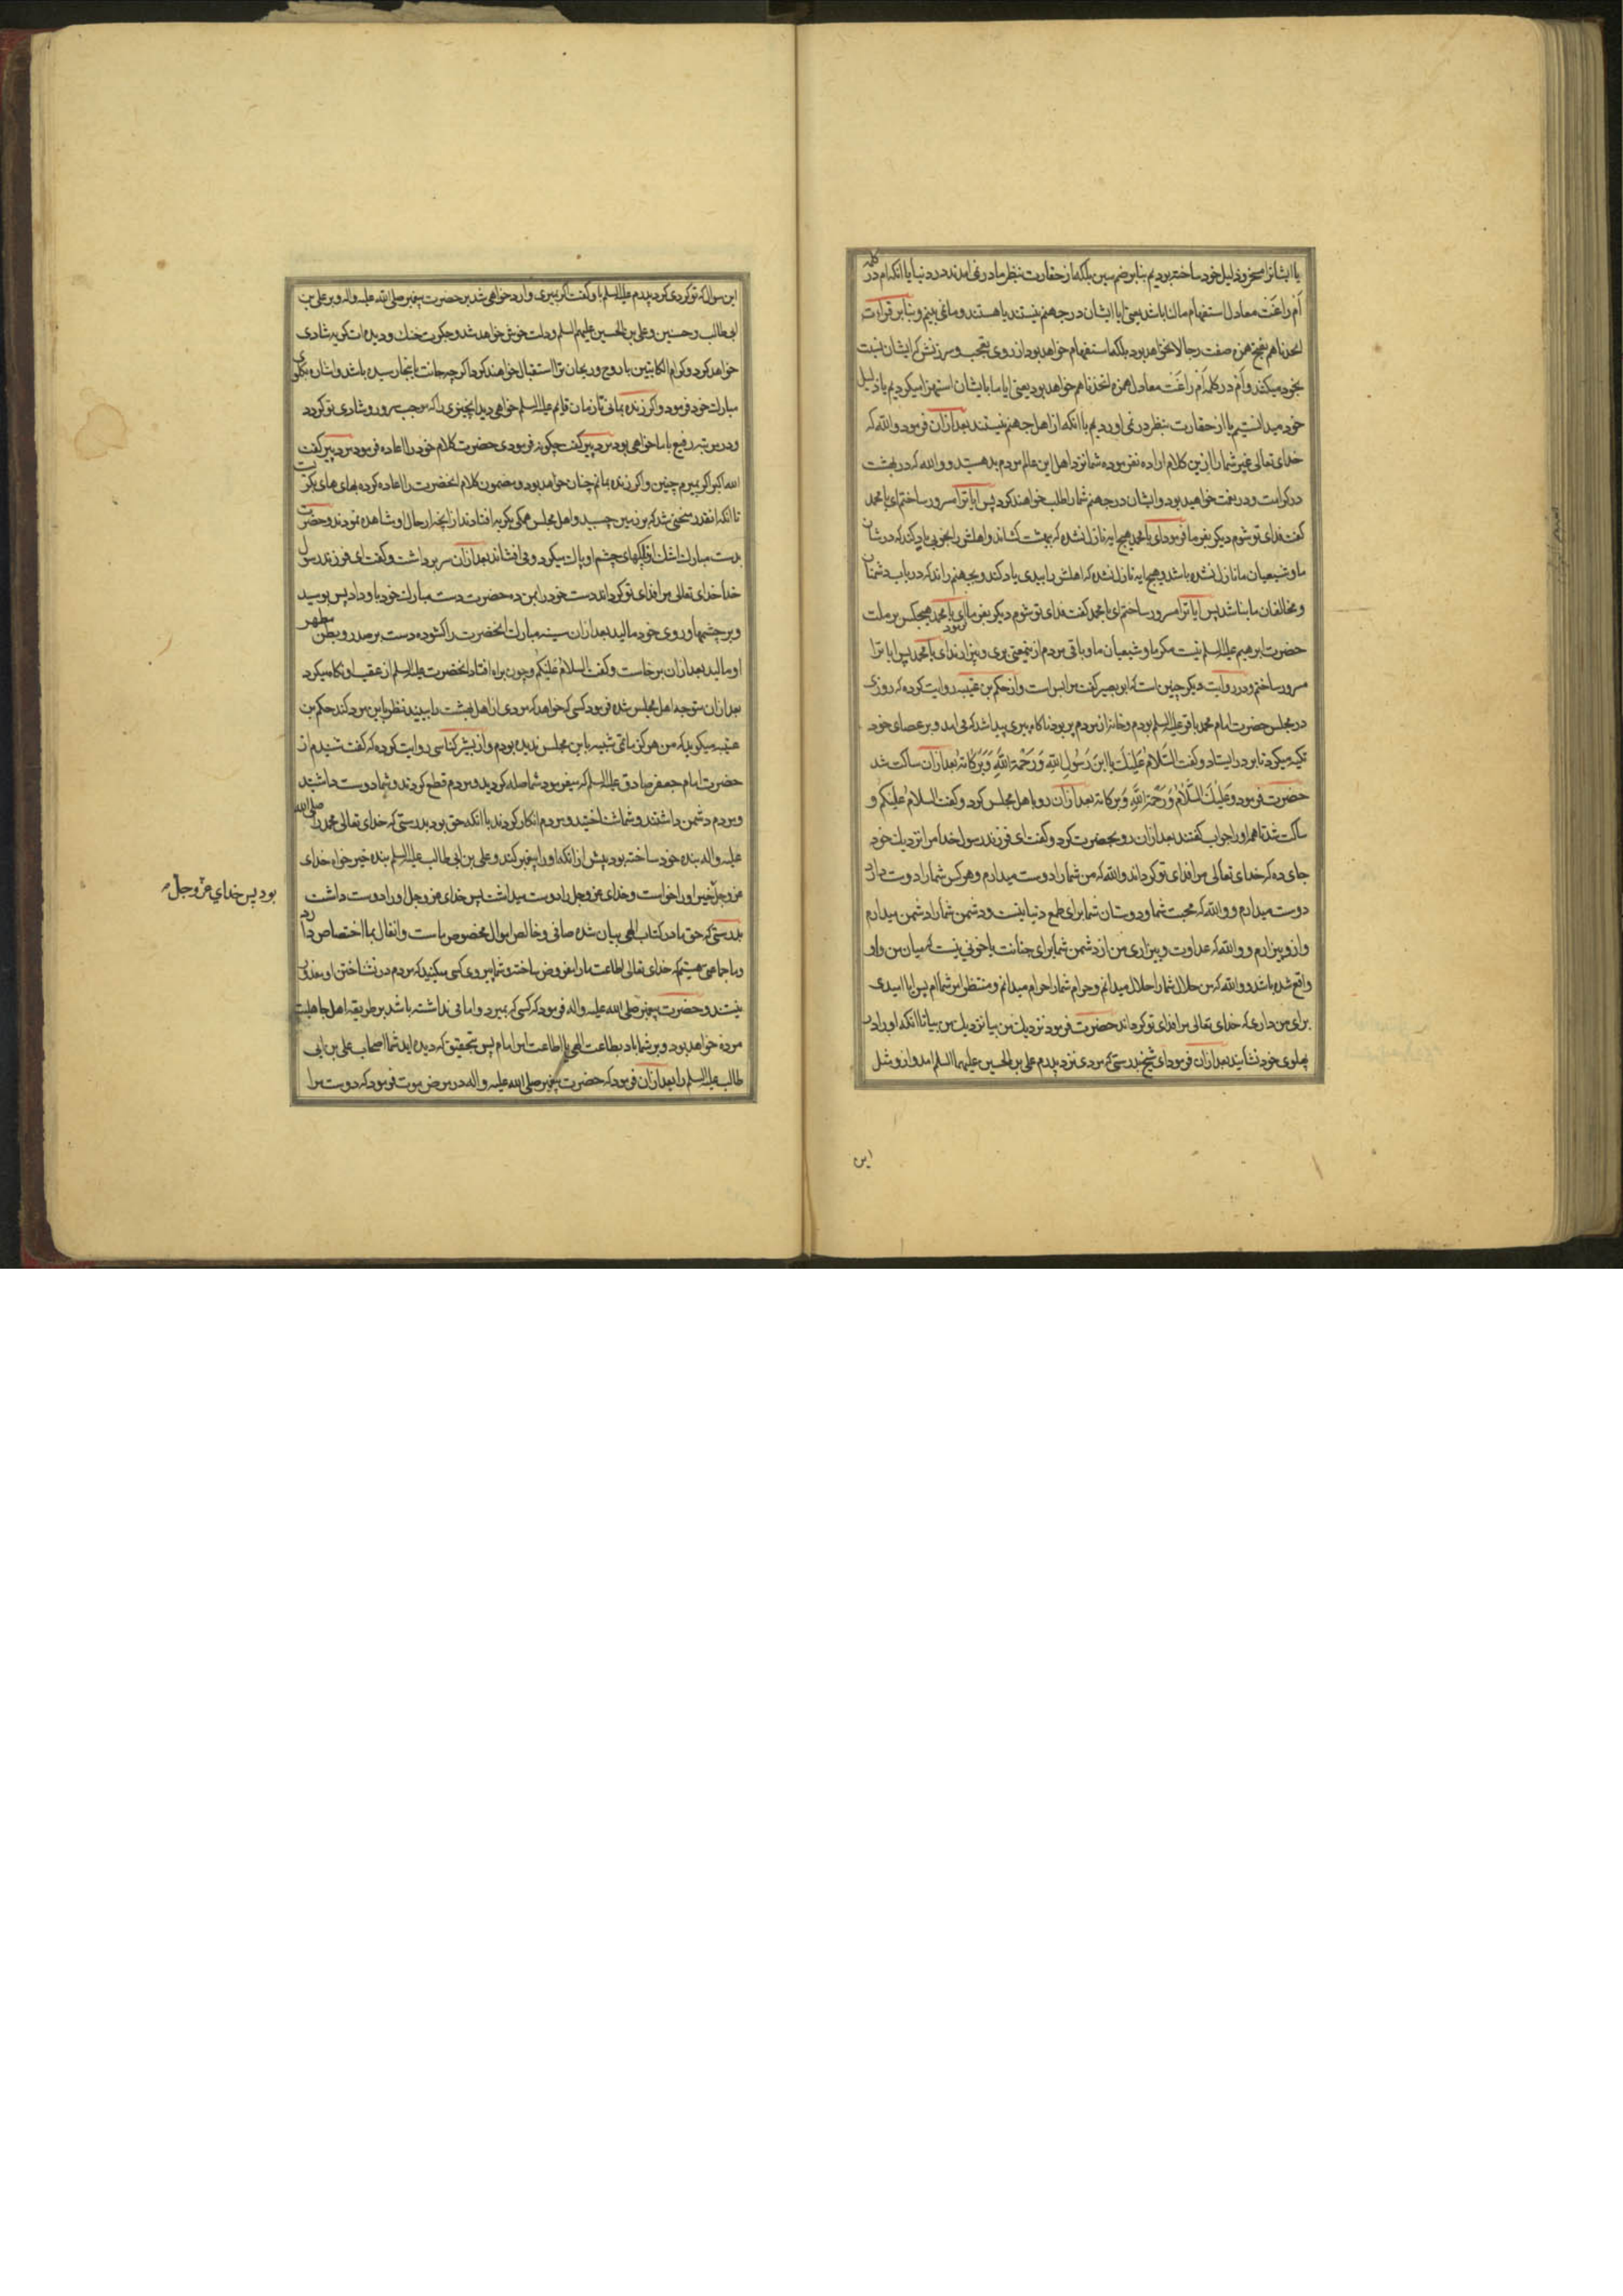 یا ایشانرا مسخر و ذلیل خود ساخته بودیم بنابر ضم سین بلکه از حقارت بنظر ما در نمی امدند در دنیا یا انکه ام در کلمه
اَم زاغَت معادل استفهام مالنا باشد یعنی ایا ایشان در جهنم نیستند یا هستند و ما نمی بینیم و بنابر قراءت
اتخذناهم بفتح همزه صفت رجالا نخواهد بود بلکه استفهام خواهد بود از روی تعجب و سرزنش که ایشان نسبت
بخود میکنند و اَم در کلمه اَم زاغَت معادل همزه اتخذناهم خواهد بود یعنی ایا ما با ایشان استهزا میکردیم یا ذلیل
خود میدانستیم یا از حقارت بنظر در نمی اوردیم با انکه از اهل جهنم نیستند بعد ازان فرمود والله که
خدای تعالی غیر شما را ازین کلام اراده نفرموده شما نزد اهل این عالم مردم بد هستید و والله که در بهشت
در کرامت و در نعمت خواهید بود و ایشان در جهنم شما را طلب خواهند کرد پس ایا ترا مسرور ساختم ای با محمد
گفت فدای تو شوم دیگر بفرما فرمود ای با محمد هیچ ایه نازل نشده که ببهشت کشاند و اهلش را بخوبی یاد کند که در شان
ما و شیعیان ما نازل نشده باشد و هیچ ایه نازل نشده که اهلش را ببدی یاد کند و بجهنم راند که در باب دشمنان
و مخالفان ما نباشد پس ایا ترا مسرور ساختم ای با محمد گفت فدای تو شوم دیگر بفرما فرمود ای با محمد هیچکس بر ملت
حضرت ابرهیم علیه السلم نیست مگر ما و شیعیان ما و باقی مردم ازینمعنی بری و بیزارند ای با محمد پس ایا ترا
مسرور ساختم و در روایت دیگر چنین است که ابن بصیر گفت مرا بس است و از حکم بن عتیبه روایت کرده که روزی
در مجلس حضرت امام محمد باقر علیه السلم بودم و خانه از مردم پر بود ناگاه پیری پیدا شد که می امد و بر عصای خود
تکیه میکرد تا بر در ایستاد و گفت السَّلامُ عَلَیكَ یا ابنَ رَسُولِ اللهِ وَ رَحْمَةُ اللهِ وَ بَرَکاتُه بعد ازان ساکت شد
حضرت فرمود وَ عَلَیْكَ السَّلامُ وَ رَحْمَةُ اللهِ وَ بَرکاته بعد ازان رو باهل مجلس کرد و گفت السلامُ عَلَیکُم و
ساکت شد تا همه او را جواب گفتند بعد ازان رو بحضرت کرد و گفت ای فرزند رسول خدا مرا نزدیك خود
جای ده که خدای تعالی مرا فدای تو گرداند والله که من شما را دوست میدارم و هرکس شما را دوست دارد
دوست میدارم و والله که محبت شما و دوستان شما برای طمع دنیا نیست و دشمن شما را دشمن میدارم
و ازو بیزارم و والله که عداوت و بیزاری من از دشمن شما برای جنایت یا خونی نیست که میان من و او
واقع شده باشد و والله که من حلال شما را حلال میدانم و حرام شما را حرام میدانم و منتظر امر شما ام پس ایا امیدی
برای من داری که خدای تعالی مرا فدای تو گرداند حضرت فرمود نزدیك من بیا نزدیك من بیا تا انکه او را در
پهلوی خود نشانید بعد ازان فرمود ای شیخ بدرستی که مردی نزد پدرم علی بن الحسین علیهما السلم امد و ازو مثل
این
این سوال که تو کردی کرد پدرم علیه السلم باو گفت اگر بمیری وارد خواهی شد بر حضرت پیغمبر صلی الله علیه و اله و بر علی بن
ابی طالب و حسنین و علی بن الحسین علیهم السلم و دلت خوش خواهد شد و جگرت خنك و دیده ات گریه شادی
خواهد کرد و کرام الکاتبین با روح و ریحان ترا استقبال خواهند کرد اگرچه جانت باینجا رسیده باشد و اشاره بگلوی
مبارك خود فرمود و اگر زنده بمانی تا زمان قایم علیه السلم خواهی دید انچیزی را که موجب سرور و شادی تو گردد
و در مرتبه رفیع با ما خواهی بود مرد پیر گفت چگونه فرمودی حضرت کلام خود را اعاده فرمود مرد پیر گفت
الله اکبر اگر بمیرم چنین و اگر زنده بمانم چنان خواهد بود و مضمون کلام انحضرت را اعاده کرده بهای های بگریست
تا انکه انقدر منحنی شد که بزمین چسبید و اهل مجلس همگی بگریه افتادند از انچه از حال او مشاهده نمودند و حضرت
بدست مبارك اشك از پلکهای چشم او پاك میکرد و می افشاند بعد ازان سر برداشت و گفت ای فرزند رسول
خدا خدای تعالی مرا فدای تو گرداند دست خود را بمن ده حضرت دست مبارك خود باو داد پس بوسید
و بر چشمها و روی خود مالید بعد ازان سینه مبارك انحضرت را گشوده دست بر صدر و بطن مطهر
او مالید بعد ازان برخاست و گفت السلامُ عَلَیکُم و چون براه افتاد انحضرت علیه السلم از عقب او نگاه میکرد
بعد ازان متوجه اهل مجلس شده فرمود کسی که خواهد که مردی از اهل بهشت را ببیند نظر باین مرد کند حکم بن
عتیبه میگوید که من هرگز ماتمی شبیه باین مجلس ندیده بودم و از بشر کناسی روایت کرده که گفت شنیدم از
حضرت امام جعفر صادق علیه السلم که میفرمود شما صله کردید و مردم قطع کردند و شما دوست داشتید
و مردم دشمن داشتند و شما شناختید و مردم انکار کردند با انکه حق بود بدرستی که خدای تعالی محمد را صلی الله
علیه واله بنده خود ساخته بود پیش از انکه او را پیغمبر کند و علی بن ابی طالب علیه السلم بنده خیر خواه خدای
عز و جل بود پس خدای عز و جل خیر او را خواست و خدای عز و جل را دوست میداشت پس خدای عز و جل او را دوست داشت
بدرستی که حق ما در کتاب الهی بیان شده صافی و خالص اموال مخصوص ماست و انفال بما اختصاص دارد
و ما جماعتی هستیم که خدای تعالی اطاعت ما را مفروض ساخته و شما پیروی کسی میکنید که مردم در نشناختن او معذور
نیستند و حضرت پیغمبر صلی الله علیه و اله فرمود که کسی که بمیرد و امامی نداشته باشد بر طریقه اهل جاهلیت
مرده خواهد بود و بر شما باد بطاعت الهی یا اطاعت امر امام پس بتحقیق که دیده اید شما اصحاب علی بن ابی
طالب علیه السلم را بعد ازان فرمود که حضرت پیغمبر صلی الله علیه و اله در مرض موت فرمود که دوست مرا